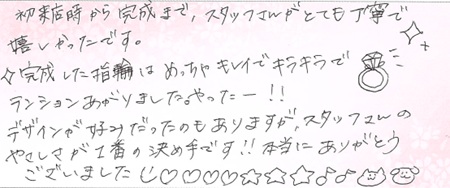 初来店時から完成まで、スタッフさんがとても丁寧で
嬉しかったです。
◇完成した指輪はめっちゃキレイでキラキラで
テンションあがりました。やったー!!
デザインが好みだったのもありますが、スタッフさんの
やさしさが1番の決め手です!!本当にありがとう
ございました♡♡♡♡☆☆☆♪♪